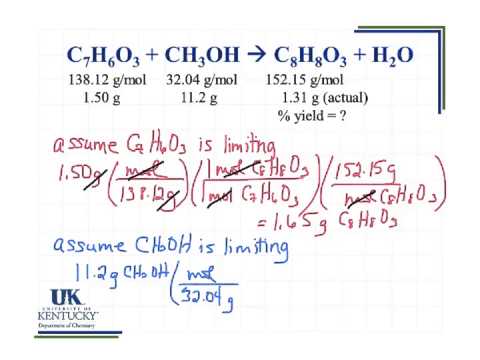 C₇H₆O₃ + CH₃OH → C₈H₈O₃ + H₂O
138.12 g/mol 32.04 g/mol 152.15 g/mol
1.50 g 11.2 g 1.31 g (actual)
% yield = ?
assume C₇H₆O₃ is limiting
1.50g (mol / 138.12g) (1 mol C₈H₈O₃ / 1 mol C₇H₆O₃) (152.15g / mol C₈H₈O₃)
= 1.65g C₈H₈O₃
assume CH₃OH is limiting
11.2g CH₃OH (mol / 32.04 g
UK
UNIVERSITY OF
KENTUCKY
Department of Chemistry